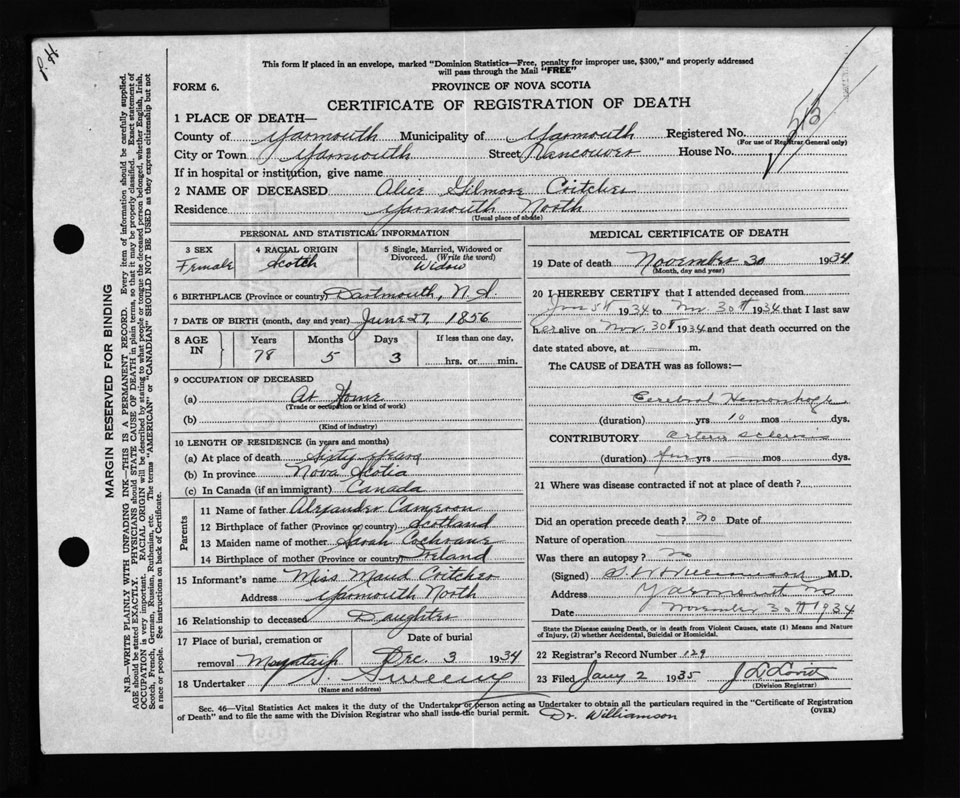 P. H
This form if placed in an envelope, marked "Dominion Statistics—Free, penalty for improper use, $300," and properly addressed
will pass through the Mail "FREE"
FORM 6.
PROVINCE OF NOVA SCOTIA
CERTIFICATE OF REGISTRATION OF DEATH
1 PLACE OF DEATH—
County of Yarmouth Municipality of Yarmouth Registered No.
(For use of Registrar General only)
City or Town Yarmouth Street Vancouver House No.
If in hospital or institution, give name
2 NAME OF DECEASED Alice Gilmore Critcher
Residence Yarmouth North
(Usual place of abode)
PERSONAL AND STATISTICAL INFORMATION
3 SEX Female
4 RACIAL ORIGIN Scotch
5 Single, Married, Widowed or Divorced. (Write the word) Widow
6 BIRTHPLACE (Province or country) Dartmouth, N.S.
7 DATE OF BIRTH (month, day and year) June 27, 1856
8 AGE IN Years 78 Months 5 Days 3 If less than one day, hrs. or min.
9 OCCUPATION OF DECEASED
(a) At Home
(Trade or occupation or kind of work)
(b)
(Kind of industry)
10 LENGTH OF RESIDENCE (in years and months)
(a) At place of death Sixty years
(b) In province Nova Scotia
(c) In Canada (if an immigrant) Canada
Parents
11 Name of father Alexander Cameron
12 Birthplace of father (Province or country) Scotland
13 Maiden name of mother Sarah Cochrane
14 Birthplace of mother (Province or country) Ireland
15 Informant's name Miss Maud Critcher
Address Yarmouth North
16 Relationship to deceased Daughter
17 Place of burial, cremation or removal
Date of burial Dec. 3 1934
18 Undertaker Sweeny
(Name and address)
MEDICAL CERTIFICATE OF DEATH
19 Date of death November 30 1934
(Month, day and year)
20 I HEREBY CERTIFY that I attended deceased from
5th 1934 to Nov. 30th 1934 that I last saw
her alive on Nov. 30th 1934 and that death occurred on the
date stated above, at m.
The CAUSE of DEATH was as follows:—
Cerebral Hemorrhage
(duration) yrs 10 mos dys.
CONTRIBUTORY Arterio sclerosis
(duration) yrs mos. dys.
21 Where was disease contracted if not at place of death?
Did an operation precede death? no Date of
Nature of operation
Was there an autopsy? no
(Signed) Williamson M.D.
Address Yarmouth NS
Date November 30th 1934
State the Disease causing Death, or in death from Violent Causes, state (1) Means and Nature
of Injury, (2) whether Accidental, Suicidal or Homicidal.
22 Registrar's Record Number 129
23 Filed Jany 2 1935
(Division Registrar)
Sec. 46—Vital Statistics Act makes it the duty of the Undertaker or person acting as Undertaker to obtain all the particulars required in the "Certificate of Registration
of Death" and to file the same with the Division Registrar who shall issue the burial permit.
(OVER)
Dr. Williamson
MARGIN RESERVED FOR BINDING
N.B.—WRITE PLAINLY WITH UNFADING INK—THIS IS A PERMANENT RECORD. Every item of information should be carefully supplied.
AGE should be stated EXACTLY. PHYSICIANS should STATE CAUSE OF DEATH in plain terms, so that it may be properly classified. Exact statement of
OCCUPATION is very important. RACIAL ORIGIN will be described by stating to what people or tongue the deceased person belonged, whether English, Irish,
Scotch, French, German, Russian, Ruthenian, etc. The terms "AMERICAN" or "CANADIAN" SHOULD NOT BE USED as they express citizenship but not
a race or people. See instructions on back of Certificate.